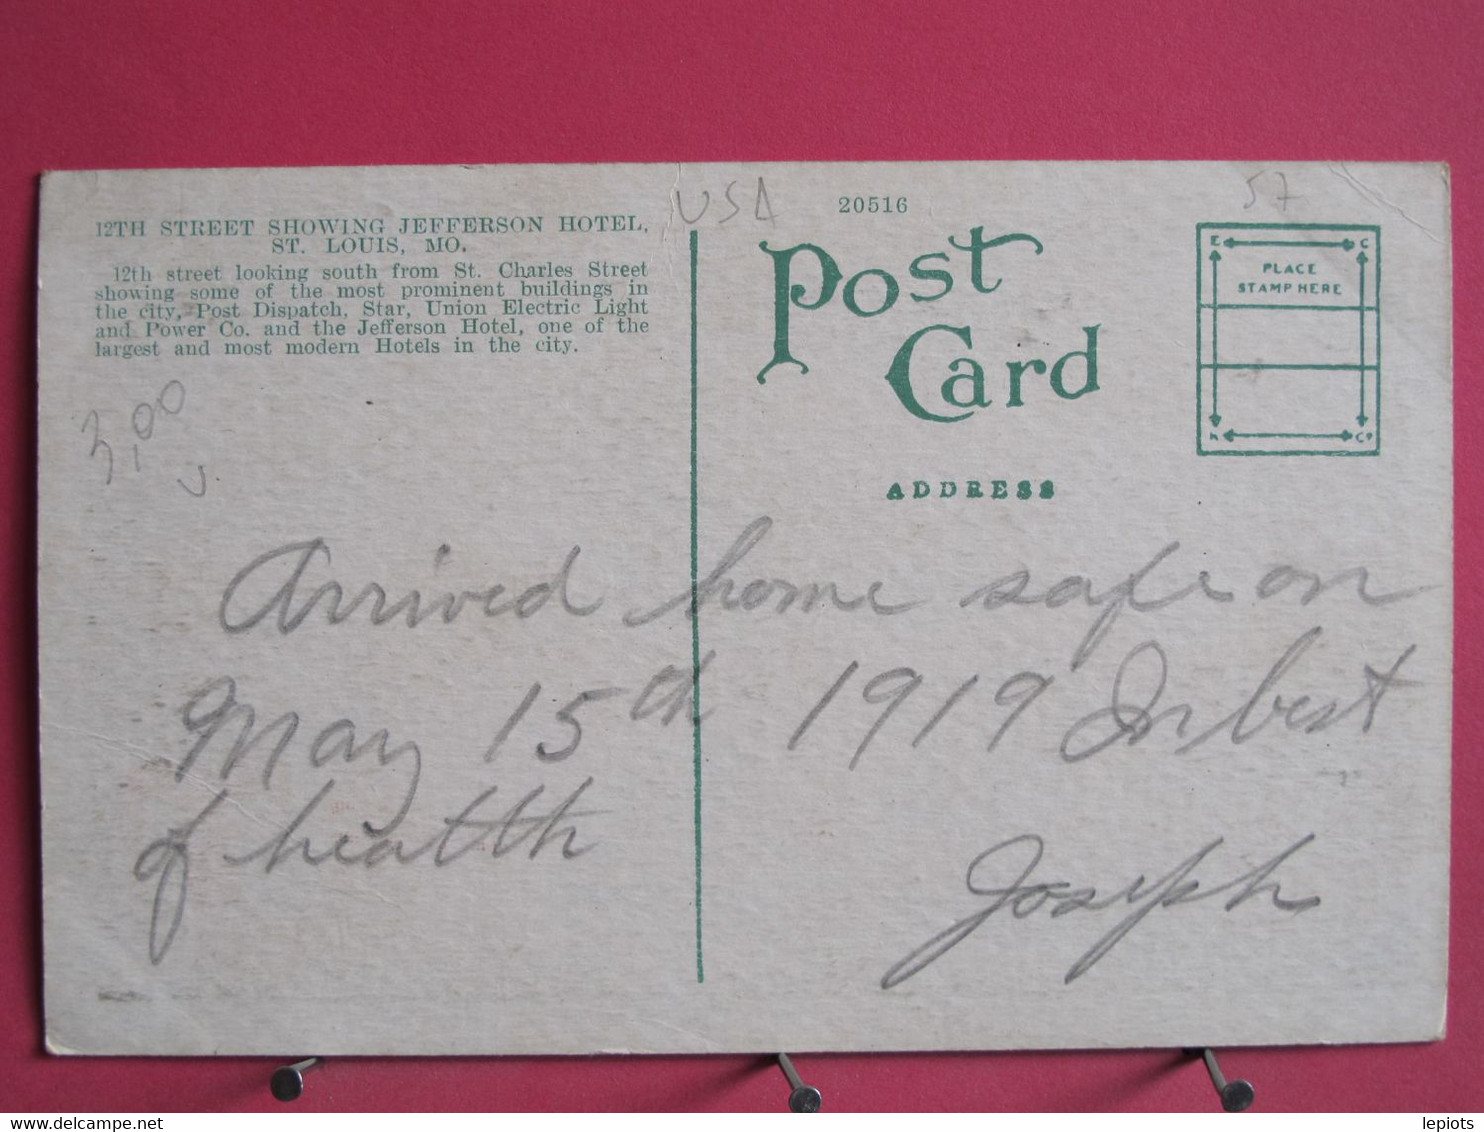 USA
20516
57
12TH STREET SHOWING JEFFERSON HOTEL,
ST. LOUIS, MO.
12th street looking south from St. Charles Street
showing some of the most prominent buildings in
the city, Post Dispatch, Star, Union Electric Light
and Power Co. and the Jefferson Hotel, one of the
largest and most modern Hotels in the city.
3,00
Post
Card
E C
PLACE
STAMP HERE
K Co
ADDRESS
Arrived home safe on
May 15th 1919 In best
of health
Joseph
delcampe.net
lepiots